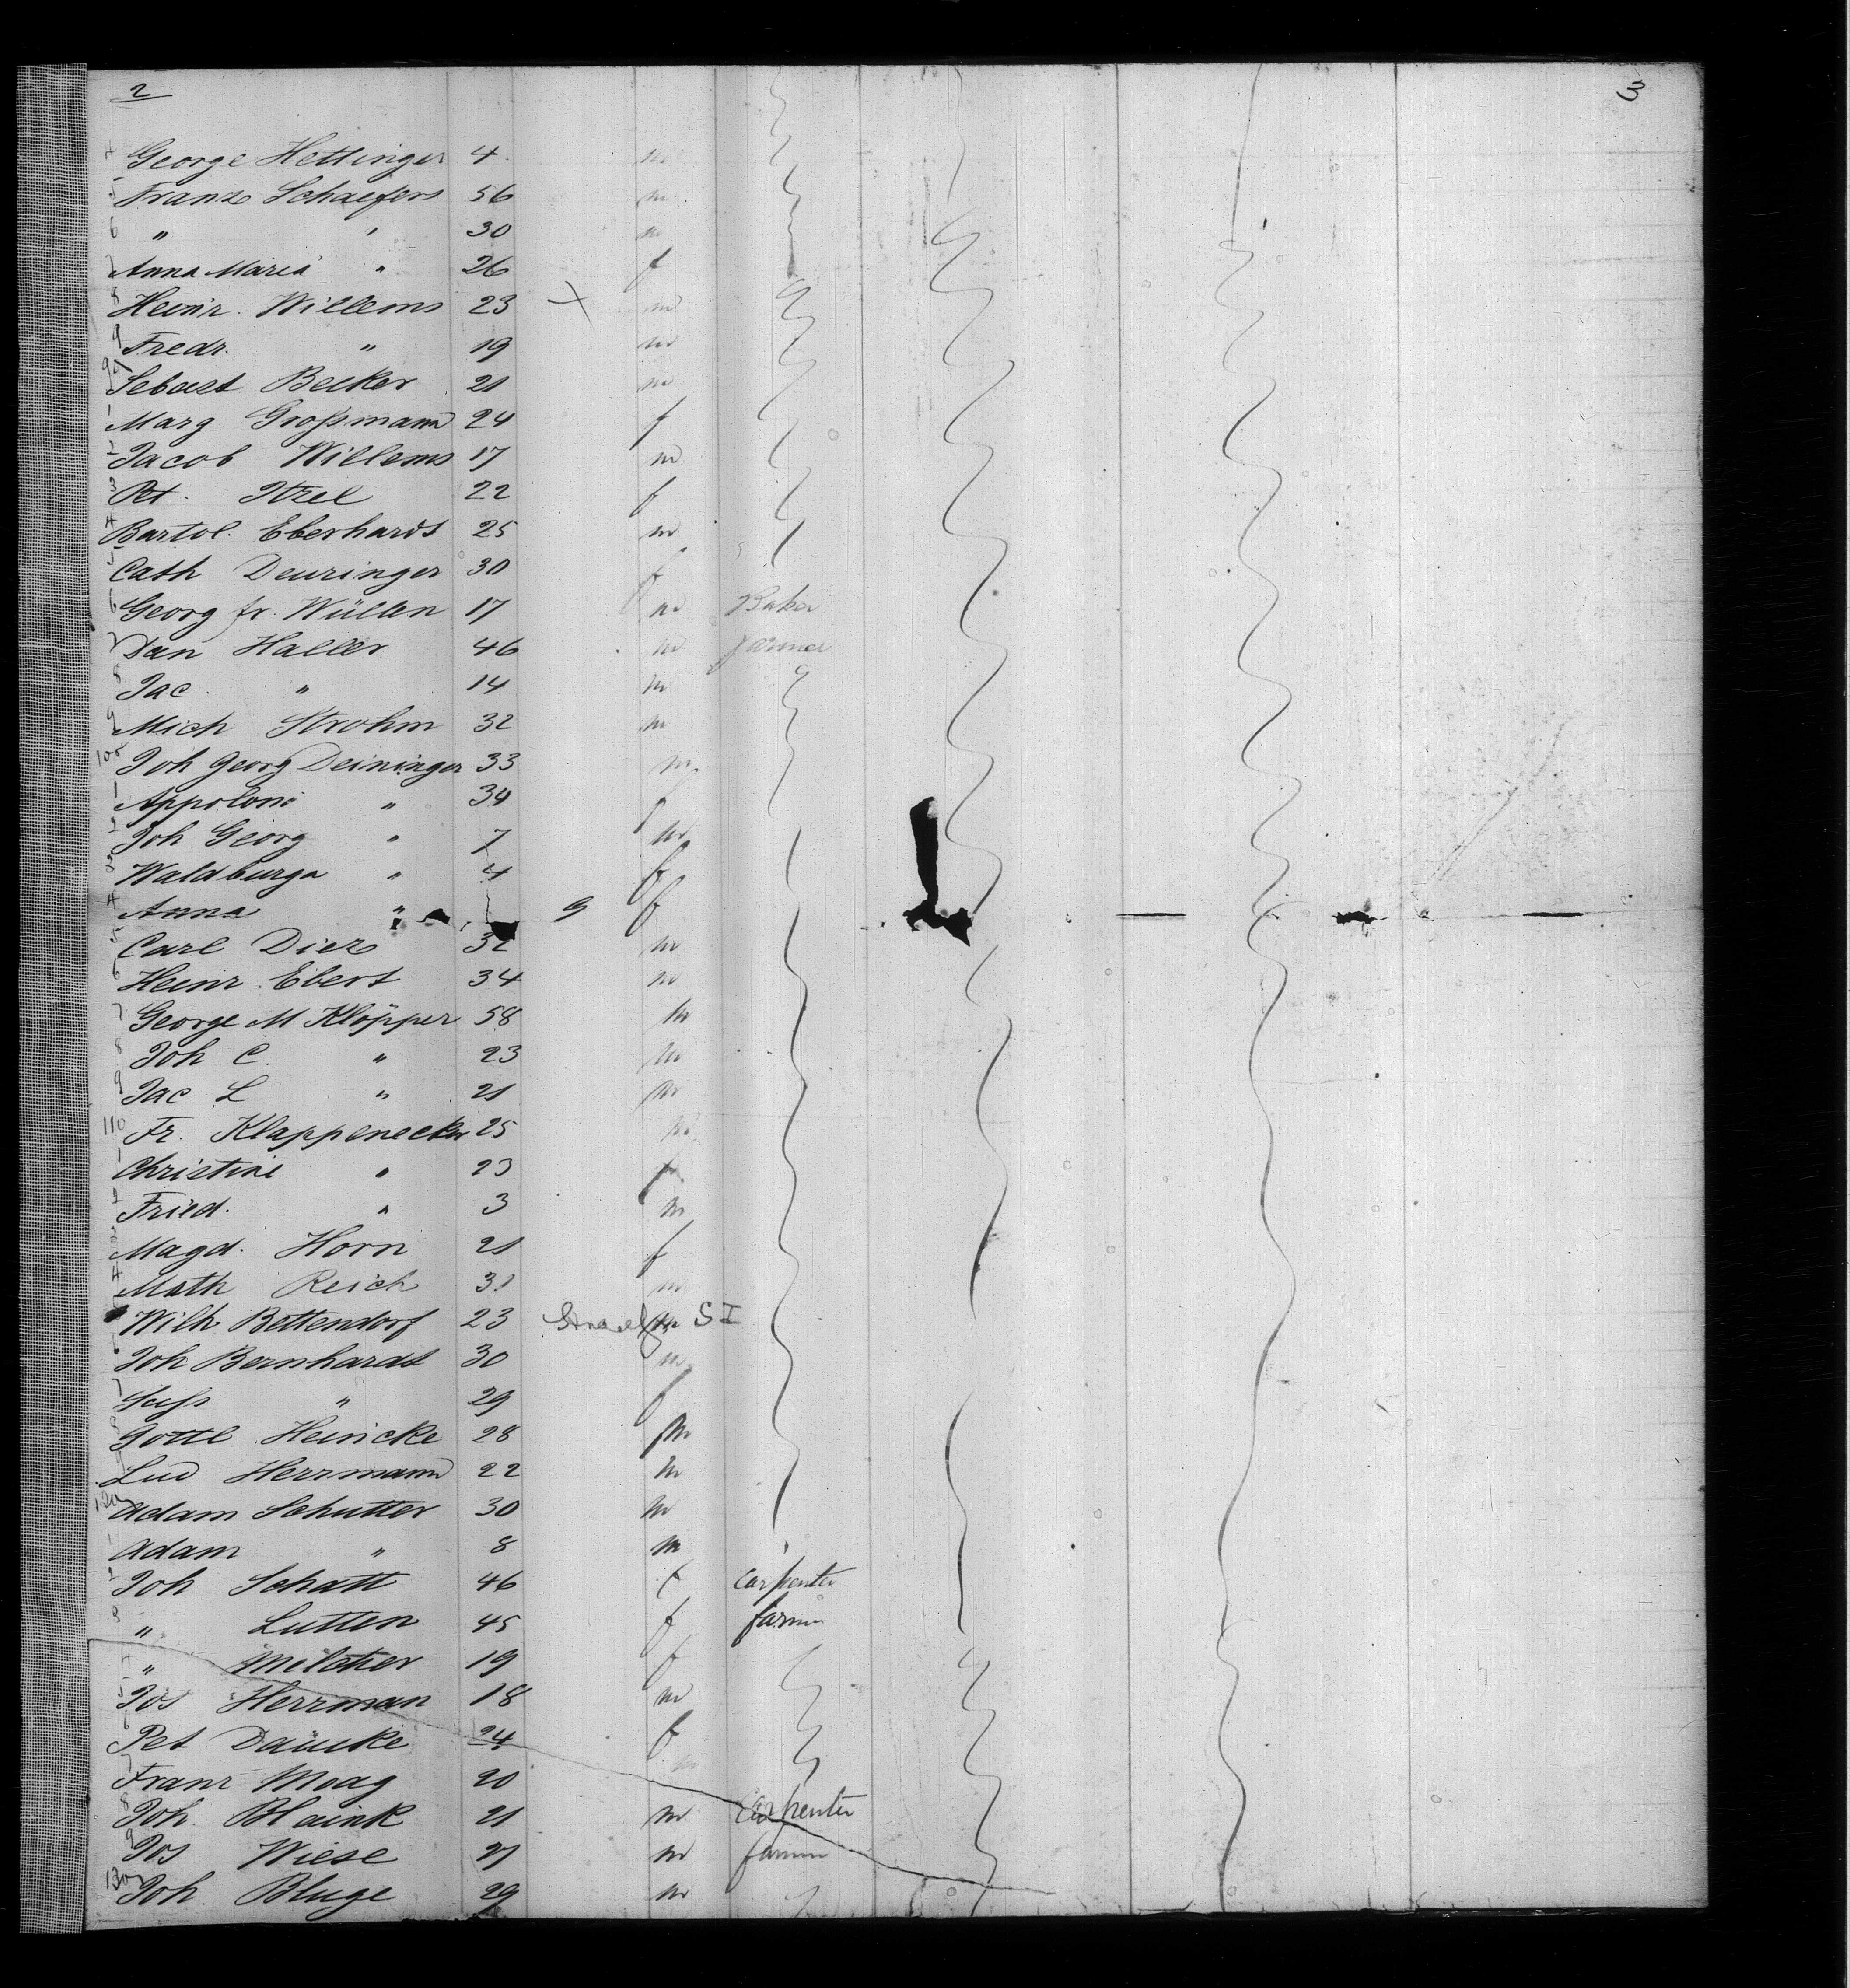 2 3
4 George Hettinger 4 m
5 Franz Schaefers 56 m
6 " " 30 m
7 Anna Maria " 26 f
8 Heinr. Willems 23 m
9 Fredr. " 19 m
90 Sebast Becker 21 m
1 Marg Großmann 24 f
2 Jacob Willems 17 m
3 Pet. Itzel 22 f
4 Bartol. Eberhardt 25 m
5 Cath Deuringer 30 f
6 Georg fr. Wüllen 17 m Baker
7 Dan Haller 46 m farmer
8 Jac. " 14 m
9 Mich Strohm 32 m
100 Joh Georg Deininger 33 m
1 Appoloni " 34 f
2 Joh Georg " 7 m
3 Waldburga " 4 f
4 Anna " 9 f
5 Carl Diez 32 m
6 Heinr. Ebert 34 m
7 George M Klöpper 58 m
8 Joh C. " 23 m
9 Jac L " 21 m
110 Fr. Klappenecker 25 m
1 Christine " 23 f
2 Fried. " 3 m
3 Magd. Horn 21 f
4 Math Reich 31 m
Wilh Bettendorf 23 m S I
6 Joh Bernhardt 30 m
7 " 29 f
8 Gottl Heinicke 28 m
9 Lud Herrmann 22 m
120 Adam Schutter 30 m
1 Adam " 8 m
2 Joh Schatt 46 f carpenter
3 " Lutten 45 f farmer
4 " Milcher 19 f
5 Jos Herrman 18 m
6 Pet Daincke 24 f
7 Franz Moag 20 m
8 Joh. Blaink 21 m carpenter
9 Jos Wiese 21 m farmer
130 Joh. Bluge 29 m